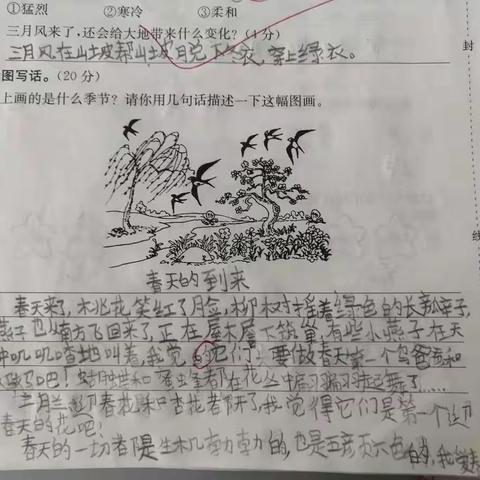 ①猛烈 ②寒冷 ③柔和
三月风来了，还会给大地带来什么变化？(1分)
三月风在山坡帮山坡脱下冬衣，穿上绿衣。
图写话。(20分)
上画的是什么季节？请你用几句话描述一下这幅图画。
封
线
春天的到来
春天来了，桃花笑红了脸，柳树摇着绿色的长辫子，
燕子也从南方飞回来了，正在屋檐下筑巢，有些小燕子在天
叽叽喳地叫着，我觉的它们 要做春天第一个
了吧！蜻蜓和 都在花丛中 翩翩起舞了……
花都开了，我觉得它们是第一个
春天的花吧！
春天的一切都是生机勃勃的，也是五颜六色的，我